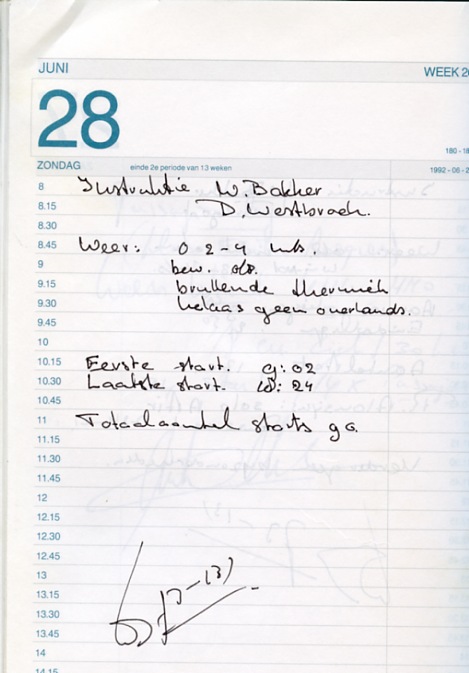 JUNI
WEEK 2
28
180 - 18
ZONDAG einde 2e periode van 13 weken 1992 - 06 - 2
8 Instruktie W. Bakker
8.15 D. Westbroek.
8.30
8.45 Weer: 0 2-4 kts.
9 bew.
9.15 brullende thermiek
9.30 helaas geen overlands.
9.45
10
10.15 Eerste start. 9:02
10.30 Laatste start. 24
10.45
11 Totaal aantal starts 90.
11.15
11.30
11.45
12
12.15
12.30
12.45
13
13.15
13.30
13.45
14
14.15